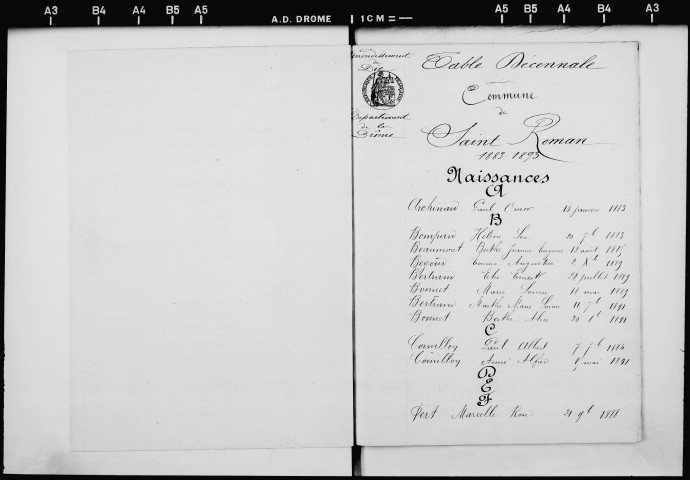 A3 B4 A4 B5 A5 A.D. DROME 1CM = A5 B5 A4 B4 A3
Arrondissement
de
Die
Département
de la
Drôme
Table Décennale
Commune
de
Saint Roman
1883-1893
Naissances
A
Archinard Paul Omer 18 janvier 1883
B
Hélène 20 7b 1883
Beaumont Berthe Jeanne 12 août
Emma Augustine 2 Xb 1889
Bertrand Elie Ernest 22 juillet 1889
Bonnet Marie Louise 16 mai 1889
Bertrand Marthe Marie 11 7b 1891
Bonnet Berthe Aline 20 1891
C
Paul Albert 7 7b 1886
Aimé Alfred mai 1891
D
E
F
Fert Marcelle Rose 21 9b 1888